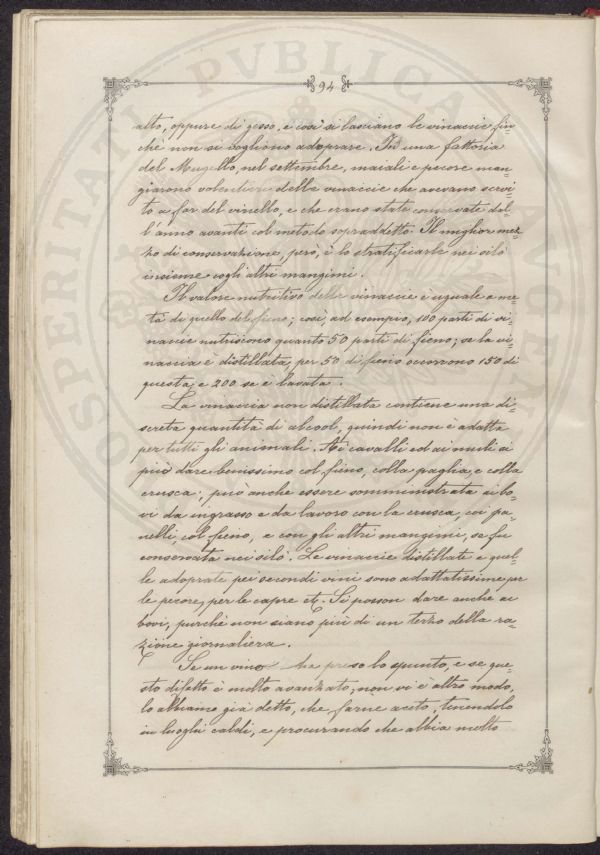 94
atto, oppure di gesso, e così si lasciano le vinaccie fin=
chè non si vogliono adoprare. In una fattoria
del Mugello, nel settembre, maiali e pecore man=
giarono volentieri delle vinaccie che avevano servi=
to a far del vinello, e che erano state conservate dal=
l'anno avanti col metodo sopraddetto. Il miglior mez=
zo di conservazione, però, è lo stratificarle nei silò
insieme cogli altri mangimi.
Il valore nutritivo delle vinaccie è uguale a me=
tà di quello del fieno; così, ad esempio, 100 parti di vi=
naccie nutriscono quanto 50 parti di fieno; se la vi=
naccia è distillata, per 50 di fieno occorrono 150 di
questa, e 200 se è lavata.
La vinaccia non distillata contiene una di=
screta quantità di alcool, quindi non è adatta
per tutti gli animali. Ai cavalli ed ai muli si
può dare benissimo col fieno, colla paglia, e colla
crusca; può anche essere somministrata ai bo=
vi da ingrasso e da lavoro con la crusca, coi pa=
nelli, col fieno, e con gli altri mangimi, se fu
conservata nei silò. Le vinaccie distillate e quel=
le adoprate pei secondi vini sono adattatissime per
le pecore, per le capre etc. Si posson dare anche ai
bovi, purchè non siano più di un terzo della ra=
zione giornaliera.
Se un vino ha preso lo spunto, e se que=
sto difetto è molto avanzato, non vi è altro modo,
lo abbiamo già detto, che farne aceto, tenendolo
in luoghi caldi, e procurando che abbia molto
PROSPERITATI PVBLICAE AVGE